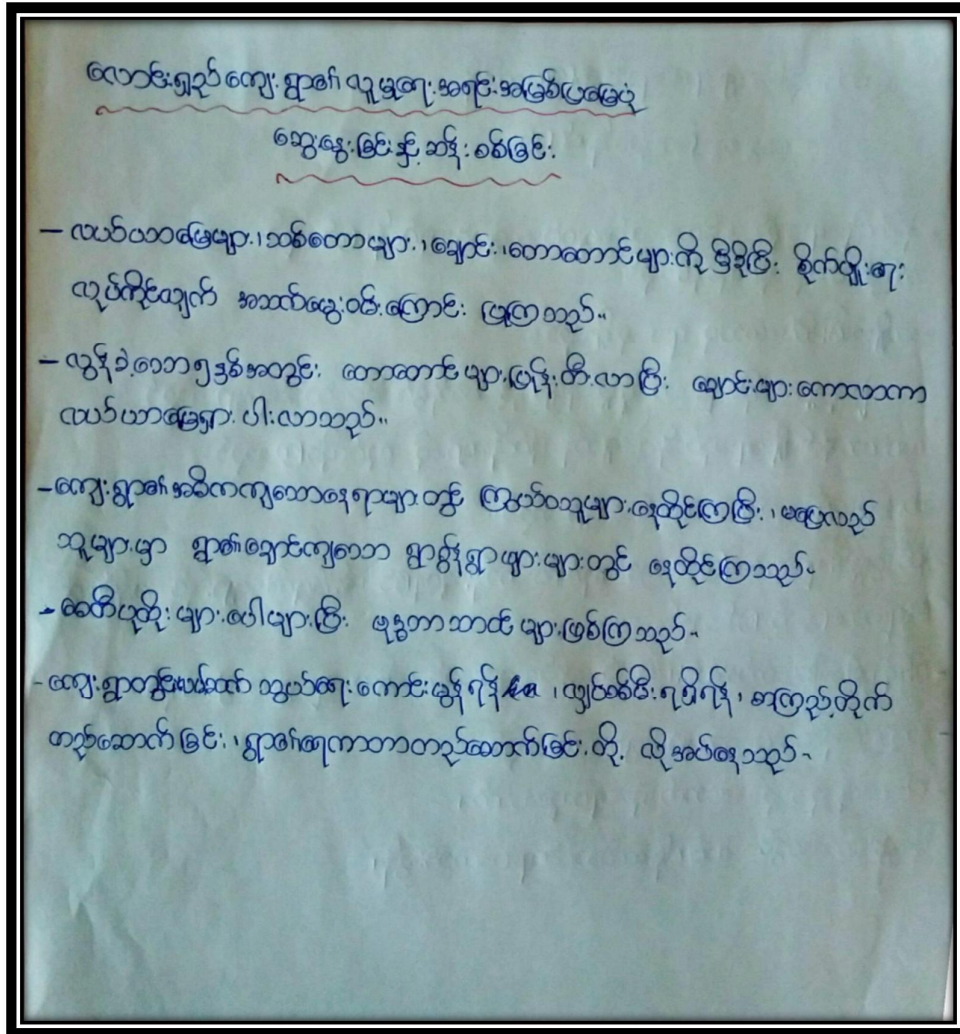 လောင်းရှည်ကျေးရွာ၏ လူမှုရေးအရင်းအမြစ်ပြမြေပုံ
ဆွေးနွေးခြင်းနှင့် ဆန်းစစ်ခြင်း
– လယ်ယာမြေများ၊ သစ်တောများ၊ ချောင်း၊ တောတောင်များကို မှီခိုပြီး စိုက်ပျိုးရေး
လုပ်ကိုင်လျက် အသက်မွေးဝမ်းကြောင်း ပြုကြသည်။
– လွန်ခဲ့သော ၅ နှစ်အတွင်း တောတောင်များပြုန်းတီးလာပြီး ချောင်းများကောလာကာ
လယ်ယာမြေရှားပါးလာသည်။
– ကျေးရွာ၏ အဓိကကျသောနေရာများတွင် ကြွယ်ဝသူများနေထိုင်ကြပြီး၊ မပြေလည်
သူများမှာ ရွာ၏ချောင်ကျသော ရွာစွန်ရွာဖျားများတွင် နေထိုင်ကြသည်။
– စေတီပုထိုးများပေါများပြီး ဗုဒ္ဓဘာသာဝင်များဖြစ်ကြသည်။
– ကျေးရွာတွင်းလမ်းပန်းဆက်သွယ်ရေး ကောင်းမွန်ရန် ၊ လျှပ်စစ်မီးရရှိရန်၊ စာကြည့်တိုက်
တည်ဆောက်ခြင်း၊ ရွာ၏ရေကာတာတည်ဆောက်ခြင်းတို့ လိုအပ်နေသည်။